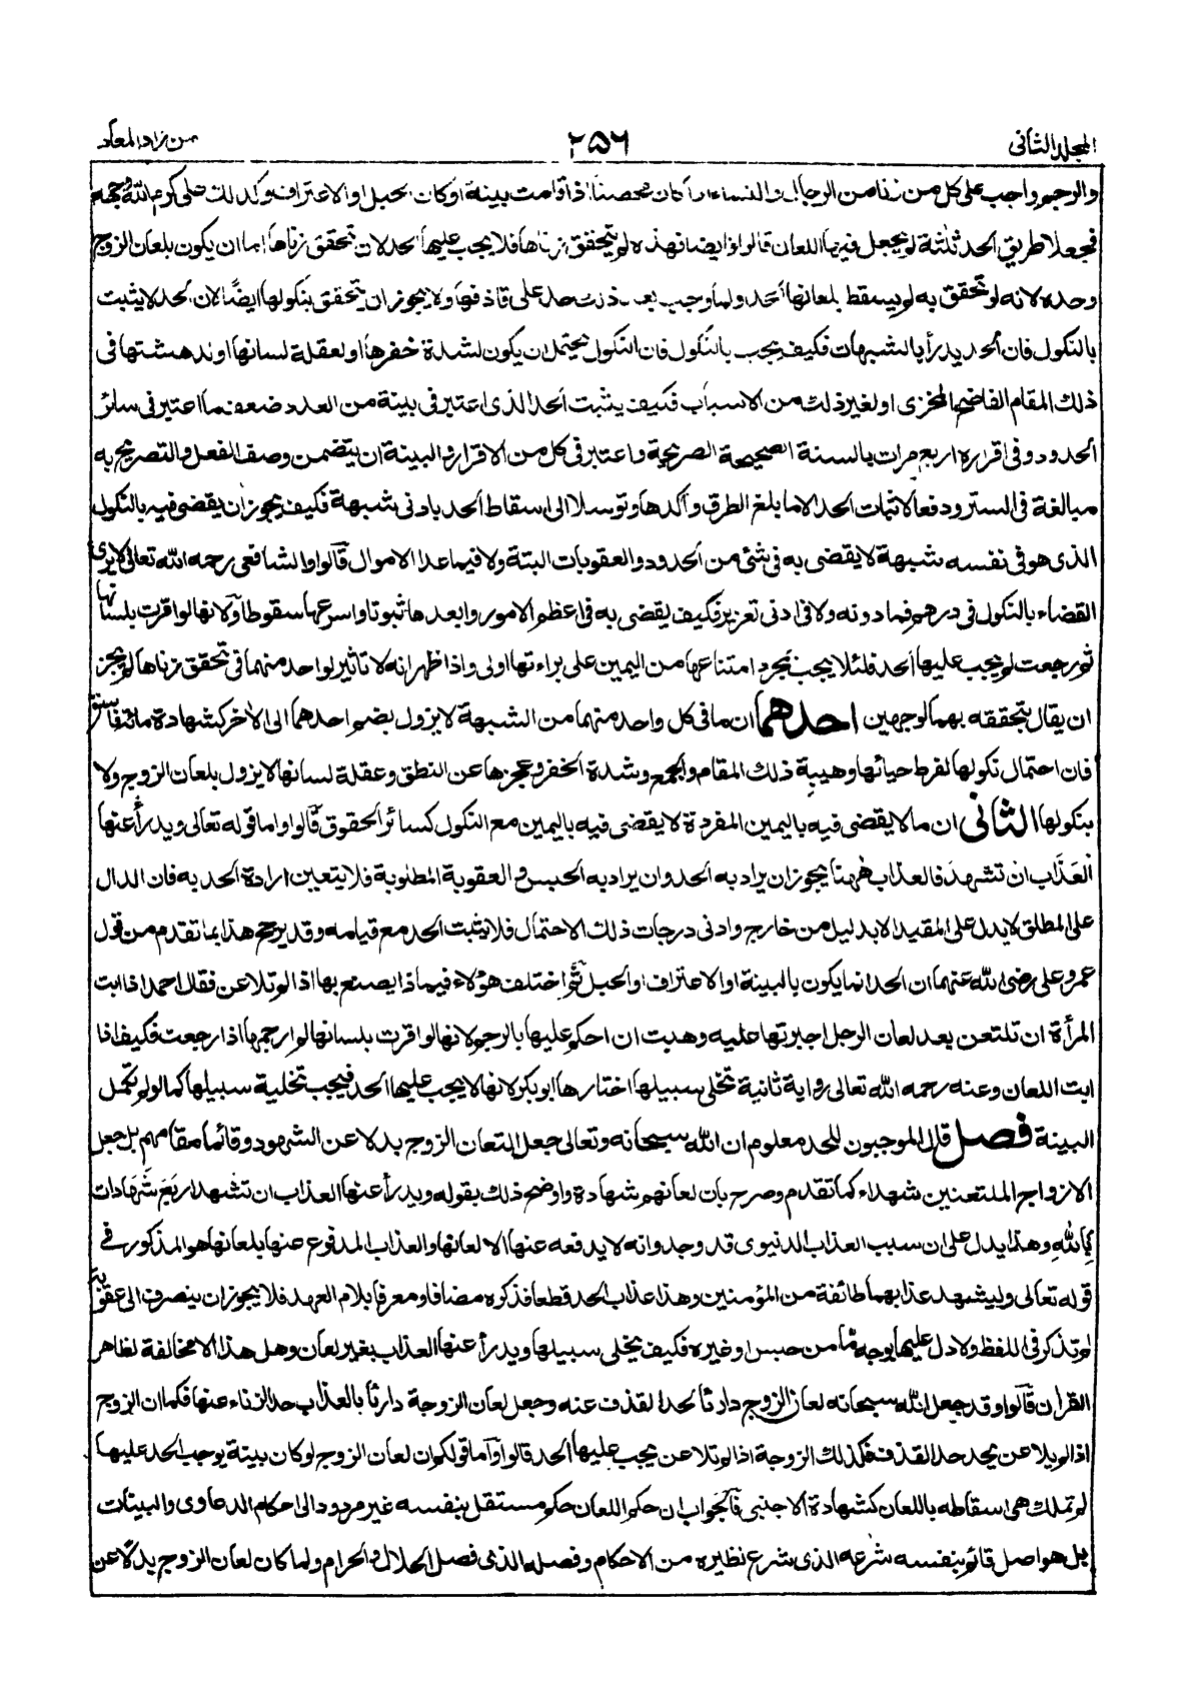 المجلد الثانى
٢٥٦
من زاد المعاد
والرجم واجب على كل من زنا من الرجال والنساء اذا كان محصنا اذا قامت بينة او كان الحبل او الاعتراف وكذلك على كرم الله وجهه
فجعلا طريق الحد ثلثة لم يجعل فيها اللعان قالوا وايضا فهذه لم يتحقق زناها فلا يجب عليها الحد لان تحقق زناها اما ان يكون بلعان الزوج
وحده لانه لو تحقق به لم يسقط بلعانها الحد ولما وجب بعد ذلك حد على قاذفها ولا يجوز ان يتحقق بنكولها ايضا لان الحد لا يثبت
بالنكول فان الحد يدرأ بالشبهات فكيف يجب بالنكول فان النكول يحتمل ان يكون لشدة خفرها او لعقلة لسانها او لدهشتها فى
ذلك المقام الفاضح المخزى او لغير ذلك من الاسباب فكيف يثبت الحد الذى اعتبر فى بينة من العدد ضعف ما اعتبر فى سائر
الحدود وفى اقراره اربع مرات بالسنة الصحيحة الصريحة واعتبر فى كل من الاقرار والبينة ان يتضمن وصف الفعل والتصريح به
مبالغة فى الستر ودفعا لاثبات الحد الا بما بلغ الطرق وأكدها وتوسلا الى اسقاط الحد بادنى شبهة فكيف يجوز ان يقضى فيه بالنكول
الذى هو فى نفسه شبهة لا يقضى به فى شئ من الحدود والعقوبات البتة ولا فيما عدا الاموال قالوا والشافعى رحمه الله تعالى لا يرى
القضاء بالنكول فى درهم فما دونه ولا فى ادنى تعزير فكيف يقضى به فى اعظم الامور وابعدها ثبوتا واسرعها سقوطا ولانها لو اقرت بلسانها
ثم رجعت لم يجب عليها الحد فلئلا يجب بمجرد امتناعها من اليمين على براءتها اولى واذا ظهر انه لا تاثير لواحد منهما فى تحقق زناها لم يجز
ان يقال بتحققه بهما لوجهين احدهما ان ما فى كل واحد منهما من الشبهة لا يزول بضم احدهما الى الاخر كشهادة مائة فاسق
فان احتمال نكولها لفرط حيائها وهيبة ذلك المقام والجمع وشدة الخفر وعجزها عن النطق وعقلة لسانها لا يزول بلعان الزوج ولا
بنكولها الثانى ان ما لا يقضى فيه باليمين المفردة لا يقضى فيه باليمين مع النكول كسائر الحقوق قالوا واما قوله تعالى ويدرأ عنها
العذاب ان تشهد فالعذاب ههنا يجوز ان يراد به الحد وان يراد به الحبس والعقوبة المطلوبة فلا يتعين ارادة الحد به فان الدال
على المطلق لا يدل على المقيد الا بدليل من خارج وادنى درجات ذلك الاحتمال فلا يثبت الحد مع قيامه وقد يرجح هذا بما تقدم من قول
عمر وعلى رضى الله عنهما ان الحد انما يكون بالبينة او الاعتراف او الحبل ثم اختلف هؤلاء فيما ذا يصنع بها اذا لم تلاعن فقال احمد اذا ابت
المرأة ان تلتعن بعد لعان الرجل اجبرتها عليه وهبت ان احكم عليها بالرجم لانها لو اقرت بلسانها لم ارجمها اذا رجعت فكيف اذا
ابت اللعان وعنه رحمه الله تعالى رواية ثانية تخلى سبيلها اختارها ابو بكر لانها لا يجب عليها الحد فيجب تخلية سبيلها كما لو لم تكمل
البينة فصل قال الموجبون للحد معلوم ان الله سبحانه وتعالى جعل التعان الزوج بدلا عن الشهود وقائما مقامهم بل جعل
الازواج الملتعنين شهداء كما تقدم وصرح بان لعانهم شهادة واوضح ذلك بقوله ويدرأ عنها العذاب ان تشهد اربع شهادات
بالله وهذا يدل على ان سبب العذاب الدنيوى قد وجد وانه لا يدفعه عنها الا لعانها والعذاب المدفوع عنها بلعانها هو المذكور فى
قوله تعالى وليشهد عذابهما طائفة من المؤمنين وهذا عذاب الحد قطعا فذكره مضافا ومعرفا بلام العهد فلا يجوز ان ينصرف الى عقوبة
لم تذكر فى اللفظ ولا دل عليها بوجه ما من حبس او غيره فكيف يخلى سبيلها ويدرأ عنها العذاب بغير لعان وهل هذا الا مخالفة لظاهر
القران قالوا وقد جعل الله سبحانه لعان الزوج دارئا لحد القذف عنه وجعل لعان الزوجة دارئا بالعذاب حد الزناء عنها فكما ان الزوج
اذا لم يلاعن يحد حد القذف فكذلك الزوجة اذا لم تلاعن يجب عليها الحد قالوا وأما قولكم ان لعان الزوج لو كان بينة يوجب الحد عليها
لم تملك هى اسقاطه باللعان كشهادة الاجنبى فالجواب ان حكم اللعان حكم مستقل بنفسه غير مردود الى احكام الدعاوى والبينات
بل هو اصل قائم بنفسه شرعه الذى شرع نظيره من الاحكام وفصله الذى فصل الحلال والحرام ولما كان لعان الزوج بدلا عن